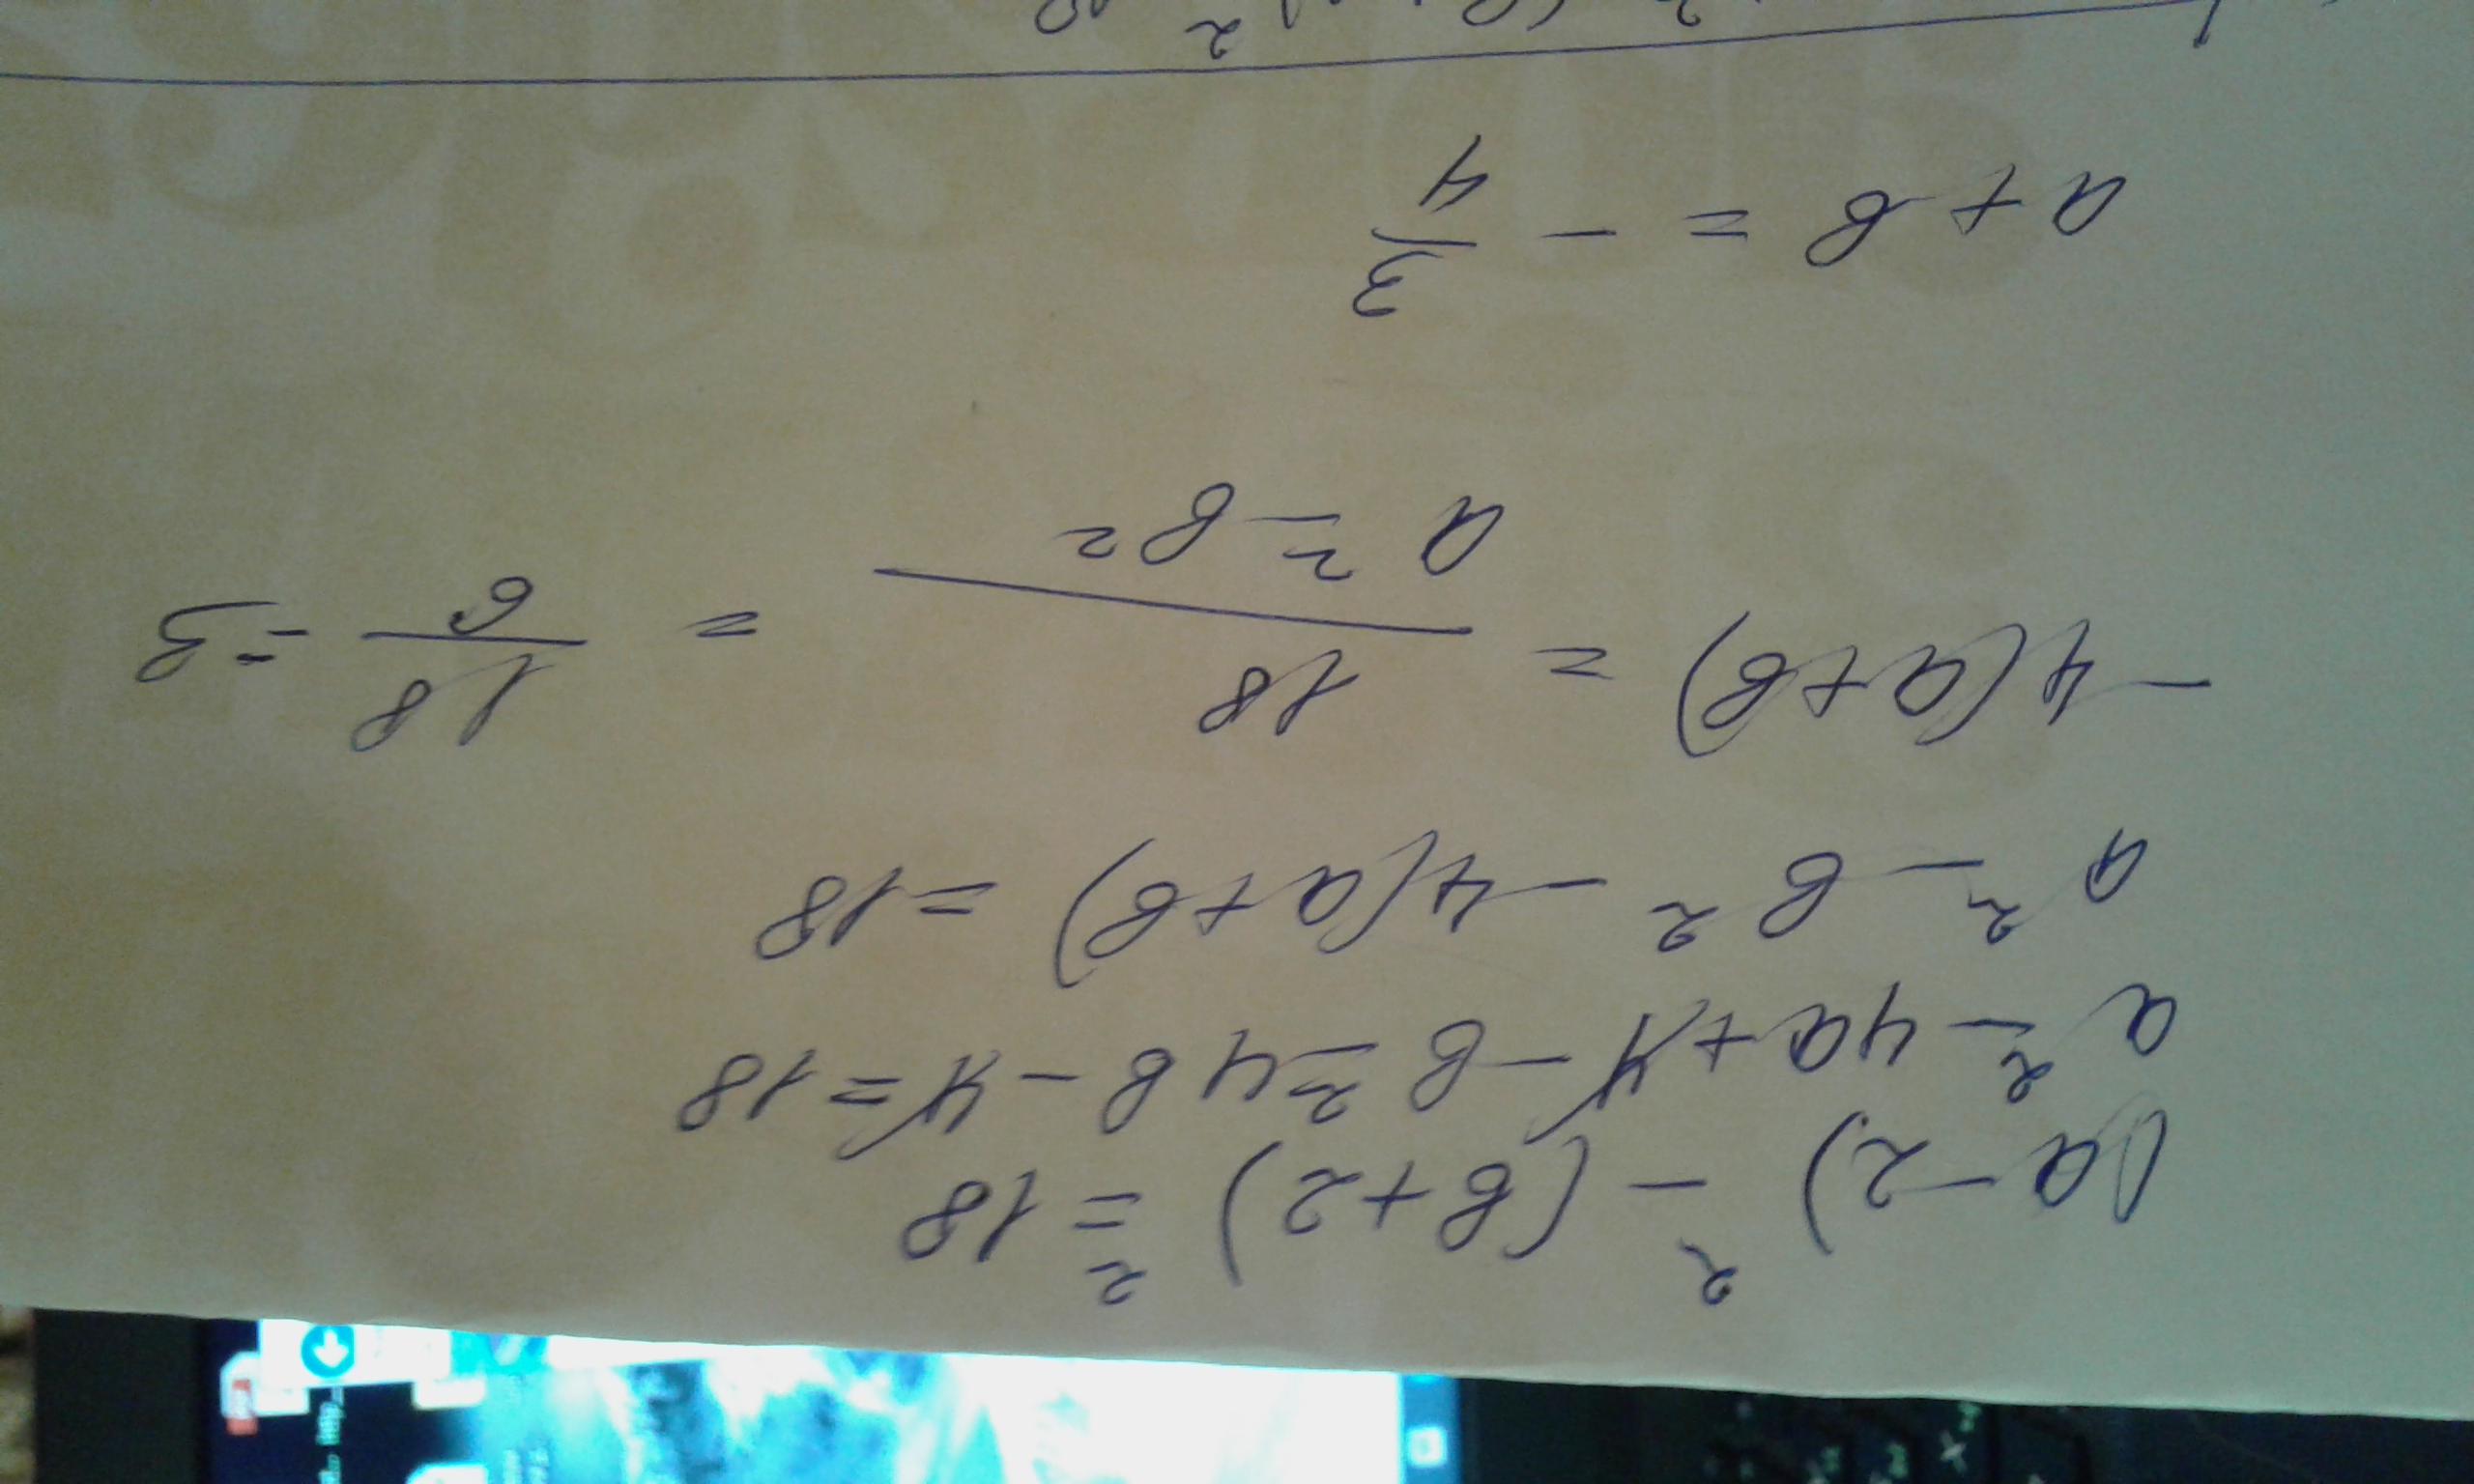 (a-2)² - (в+2)² = 18
a² - 4a + 4 - в² - 4в - 4 = 18
a² - в² - 4(a+в) = 18
-4(a+в) = 18/(a² - в²) = 18/6 = 3
a + в = - 3/4